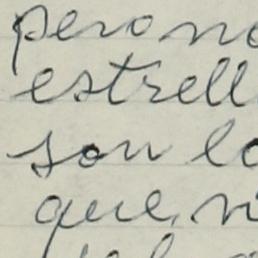 pero no
estrell
son lo
que, n